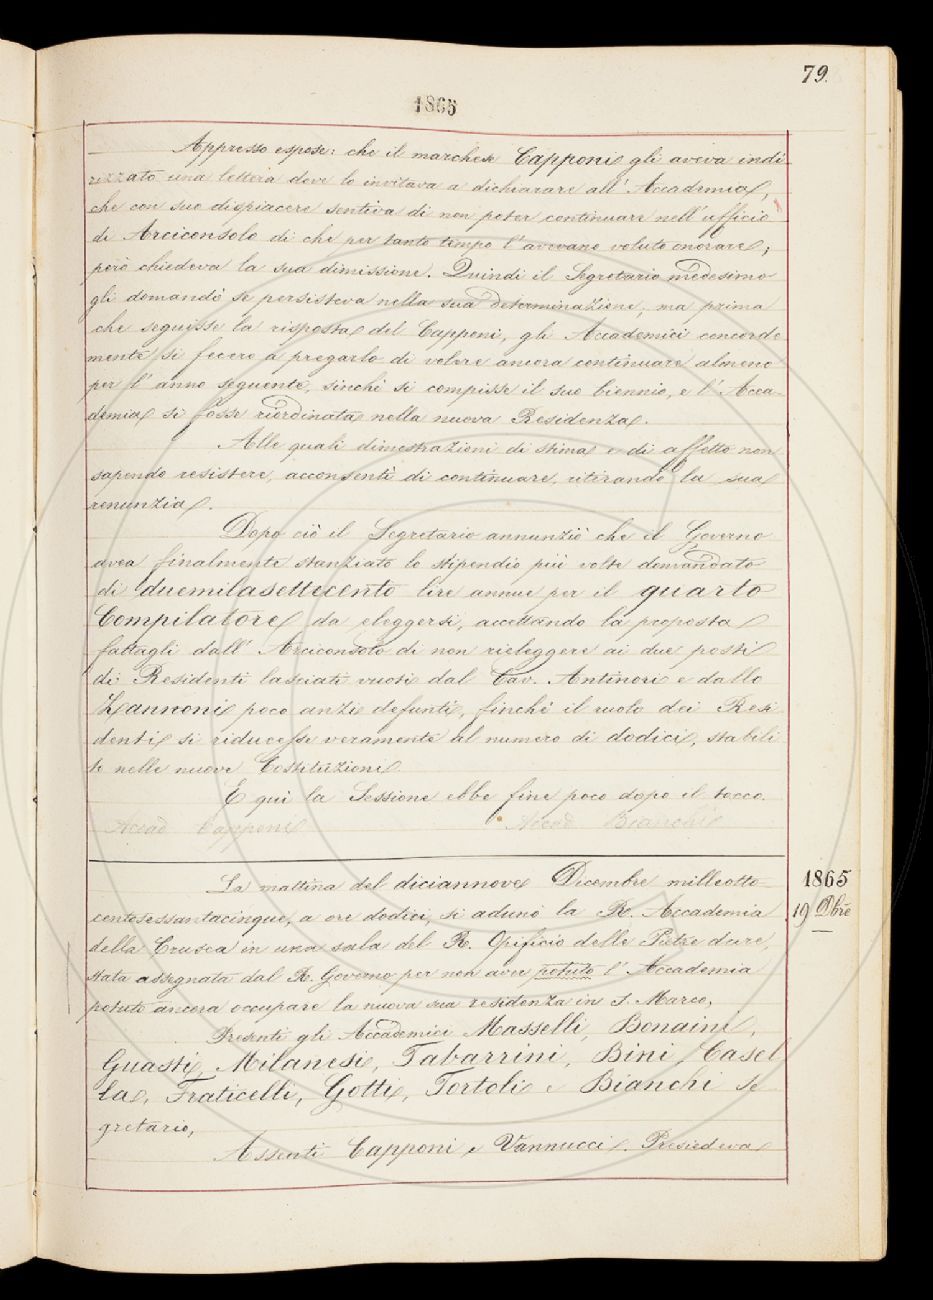 79.
1865
Appresso espose: che il marchese Capponi gli aveva indi-
rizzato una lettera dove lo invitava a dichiarare all' Accademia,
che con suo dispiacere sentiva di non poter continuare nell' ufficio
di Arciconsolo di che per tanto tempo l' avevano voluto onorare;
però chiedeva la sua dimissione. Quindi il Segretario medesimo
gli domandò se persisteva nella sua determinazione; ma prima
che seguisse la risposta del Capponi, gli Accademici concorde
mente si fecero a pregarlo di volere ancora continuare almeno
per l' anno seguente, sinchè si compisse il suo biennio, e l' Acca-
demia si fosse riordinata nella nuova Residenza.
Alle quali dimostrazioni di stima e di affetto non
sapendo resistere, acconsentì di continuare, ritirando la sua
renunzia.
Dopo ciò il Segretario annunziò che il Governo
avea finalmente stanziato lo stipendio più volte domandato
di duemilasettecento lire annue per il quarto
Compilatore da eleggersi, accettando la proposta
fattagli dall' Arciconsolo di non rieleggere ai due posti
di Residenti lasciati vuoti dal Cav. Antinori e dallo
Zannoni poco anzi defunti, finchè il ruolo dei Resi
denti si riducesse veramente al numero di dodici, stabili
to nelle nuove Costituzioni.
E qui la Sessione ebbe fine poco dopo il tocco.
Accad Capponi Accad Bianchi
La mattina del diciannove Dicembre milleotto-
centosessantacinque, a ore dodici, si adunò la R. Accademia
della Crusca in una sala del R. Opificio delle Pietre dure,
stata assegnata dal R. Governo per non aver potuto l' Accademia
potuto ancora occupare la nuova sua residenza in S. Marco.
1865
19 Dbre
Presenti gli Accademici Masselli, Bonaini,
Guasti, Milanesi, Tabarrini, Bini, Casel
la, Fraticelli, Gotti, Tortoli e Bianchi Se
gretario,
Assenti Capponi e Vannucci. Presiedeva